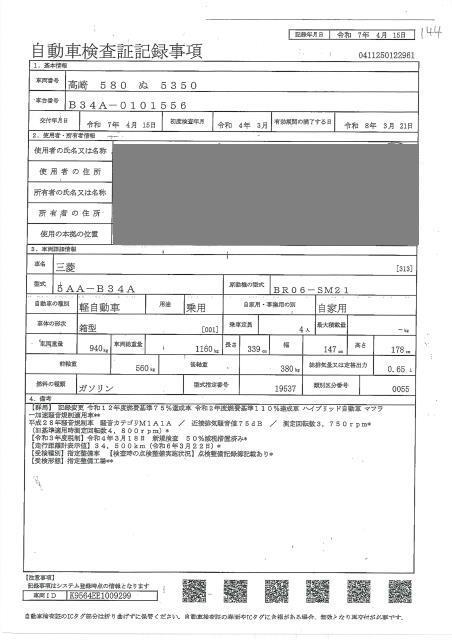 記録年月日 令和 7年 4月 15日
144
自動車検査証記録事項
0411250122961
1. 基本情報
車両番号 高崎 580 ぬ 5350
車台番号 B34A-0101556
交付年月日 令和 7年 4月 15日 初度検査年月 令和 4年 3月 有効期間の満了する日 令和 8年 3月 21日
2. 使用者・所有者情報
使用者の氏名又は名称
使用者の住所
所有者の氏名又は名称
所有者の住所
使用の本拠の位置
3. 車両詳細情報
車名 三菱 [313]
型式 5AA-B34A 原動機の型式 BR06-SM21
自動車の種別 軽自動車 用途 乗用 自家用・事業用の別 自家用
車体の形状 箱型 [001] 乗車定員 4人 最大積載量 -kg
車両重量 940kg 車両総重量 1160kg 長さ 339cm 幅 147cm 高さ 178cm
前軸重 560kg 後軸重 380kg 総排気量又は定格出力 0.65L
燃料の種類 ガソリン 型式指定番号 19537 類別区分番号 0055
4. 備考
【群馬】 記録変更 令和12年度燃費基準75%達成車 令和2年度燃費基準110%達成車 ハイブリッド自動車 マフラ
ー加速騒音規制適用車**
平成28年騒音規制車 騒音カテゴリM1A1A / 近接排気騒音値75dB / 測定回転数3,750rpm**
(旧基準適用時測定回転数4,800rpm)*
【令和3年度税制】令和4年3月18日 新規検査 50%減税措置済み*
【走行距離計表示値】34,500km(令和6年3月22日)*
【受検種別】指定整備車 【検査時の点検整備実施状況】点検整備記録簿記載あり*
【受検形態】指定整備工場**
【注意事項】
記録事項はシステム登録時点の情報となります
車両ID K9564EE1009299
自動車検査証のICタグ部分は折り曲げずに保管ください。自動車検査証の券面やICタグに汚損がある場合、無効となり再交付が必要です。